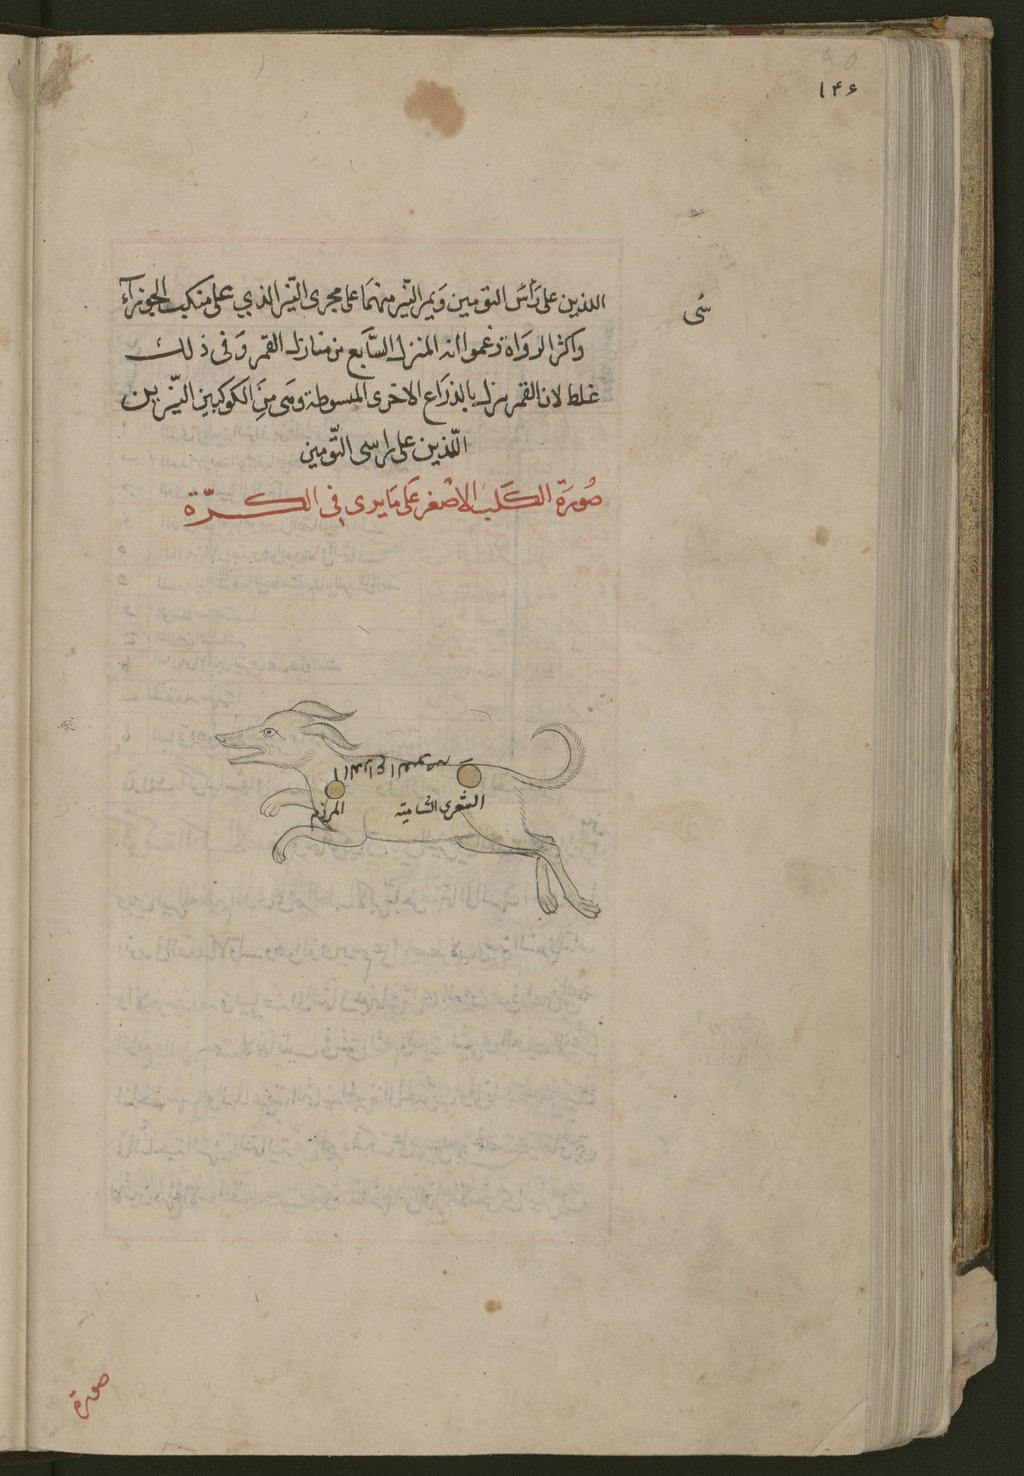 ١۴۶
اللذين على رأس التومين ويمر النير منهما على مجرى النير الذي على منكب الجوزآء
سى
واكثر الرواة زعموا انه المنزل السابع من منازل القمر وفى ذلك
غلط لان القمر ينزل بالذراع الاخرى المبسوطة وهى من الكوكبين النيرين
اللذين على راسى التومين
صورة الكلب الاصغر على ما يرى فى الكرة
الذراع المقبوضة
المرزم
الشعرى الشامية
صورة